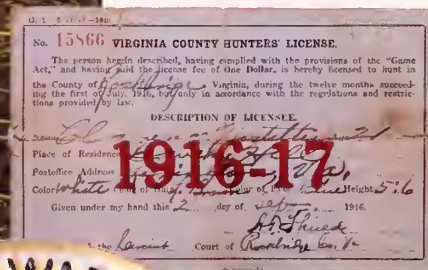 No. 15866 VIRGINIA COUNTY HUNTERS' LICENSE.
The person herein described, having complied with the provisions of the "Game
Act," and having paid the license fee of One Dollar, is hereby licensed to hunt in
the County of Rockbridge Virginia, during the twelve months succeed-
ing the first of July, 1916, but only in accordance with the regulations and restric-
tions provided by law.
DESCRIPTION OF LICENSEE.
Place of Residence
Postoffice Address Va,
Color White Color of Hair Color of Eyes Height 5:6
1916-17
Given under my hand this 2 day of Sept 1916.
Shields
the Circuit Court of Rockbridge Co. Va